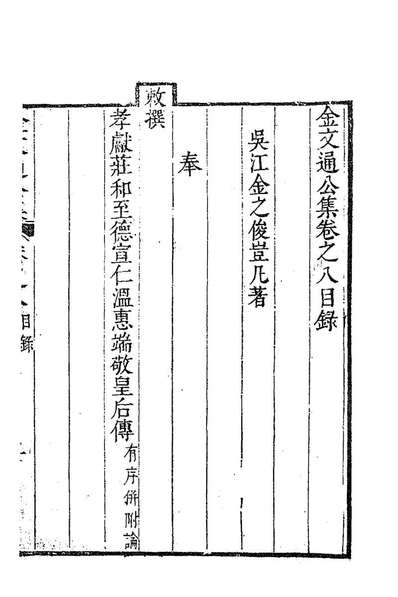 金文通公集卷之八目錄
吳江金之俊豈凡著
奉
敕撰
孝獻莊和至德宣仁溫惠端敬皇后傳有序併附論
目錄